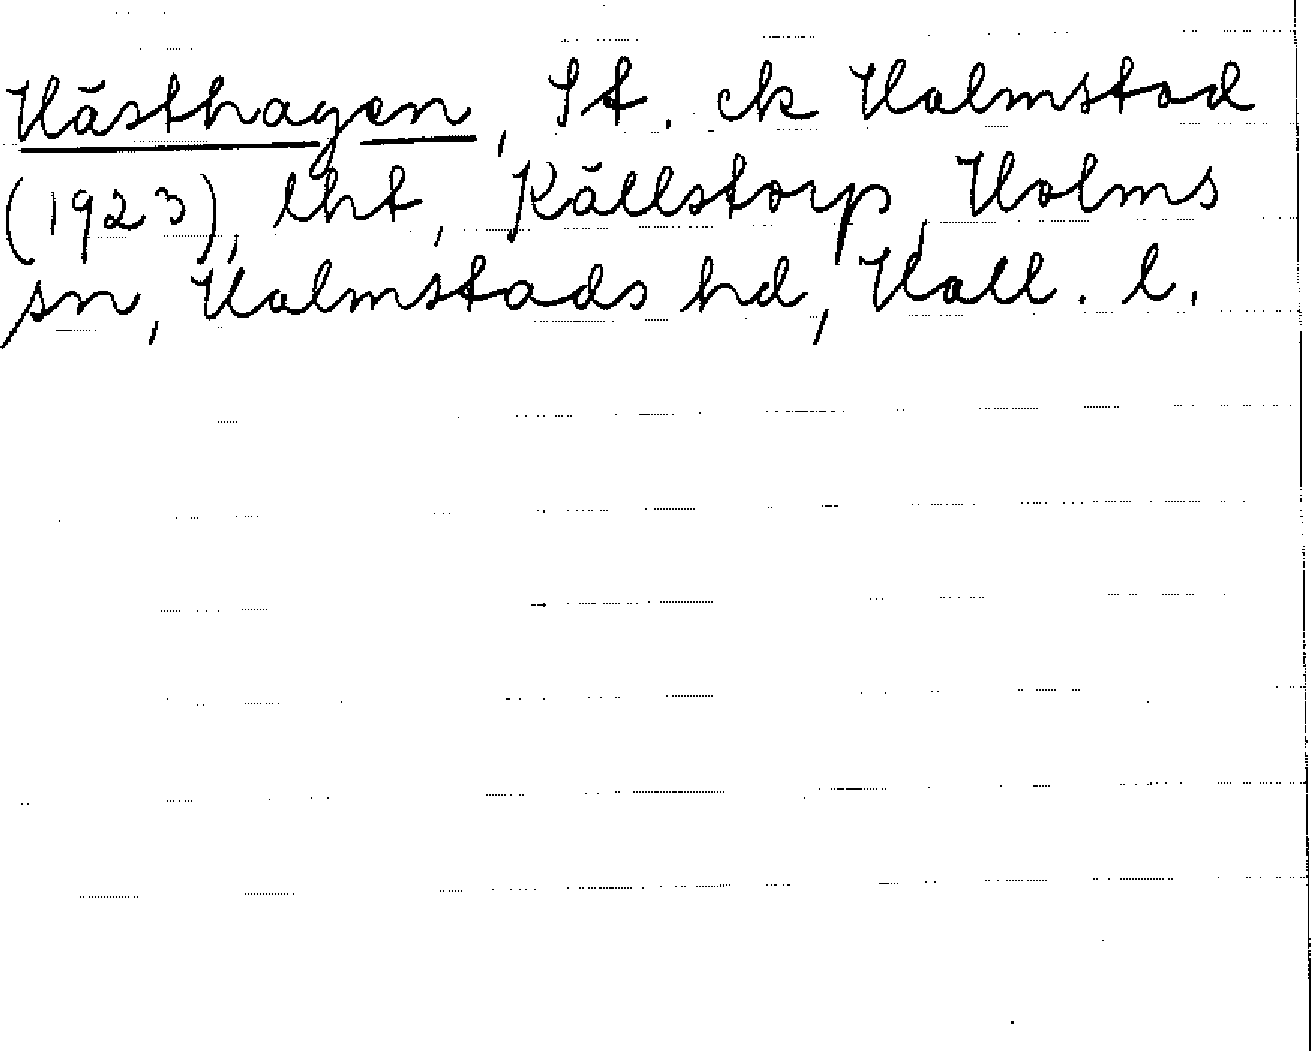 Hästhagen, St. ek Halmstad
(1923), lht, Källstorp, Holms
sn, Halmstads hd, Hall. l.